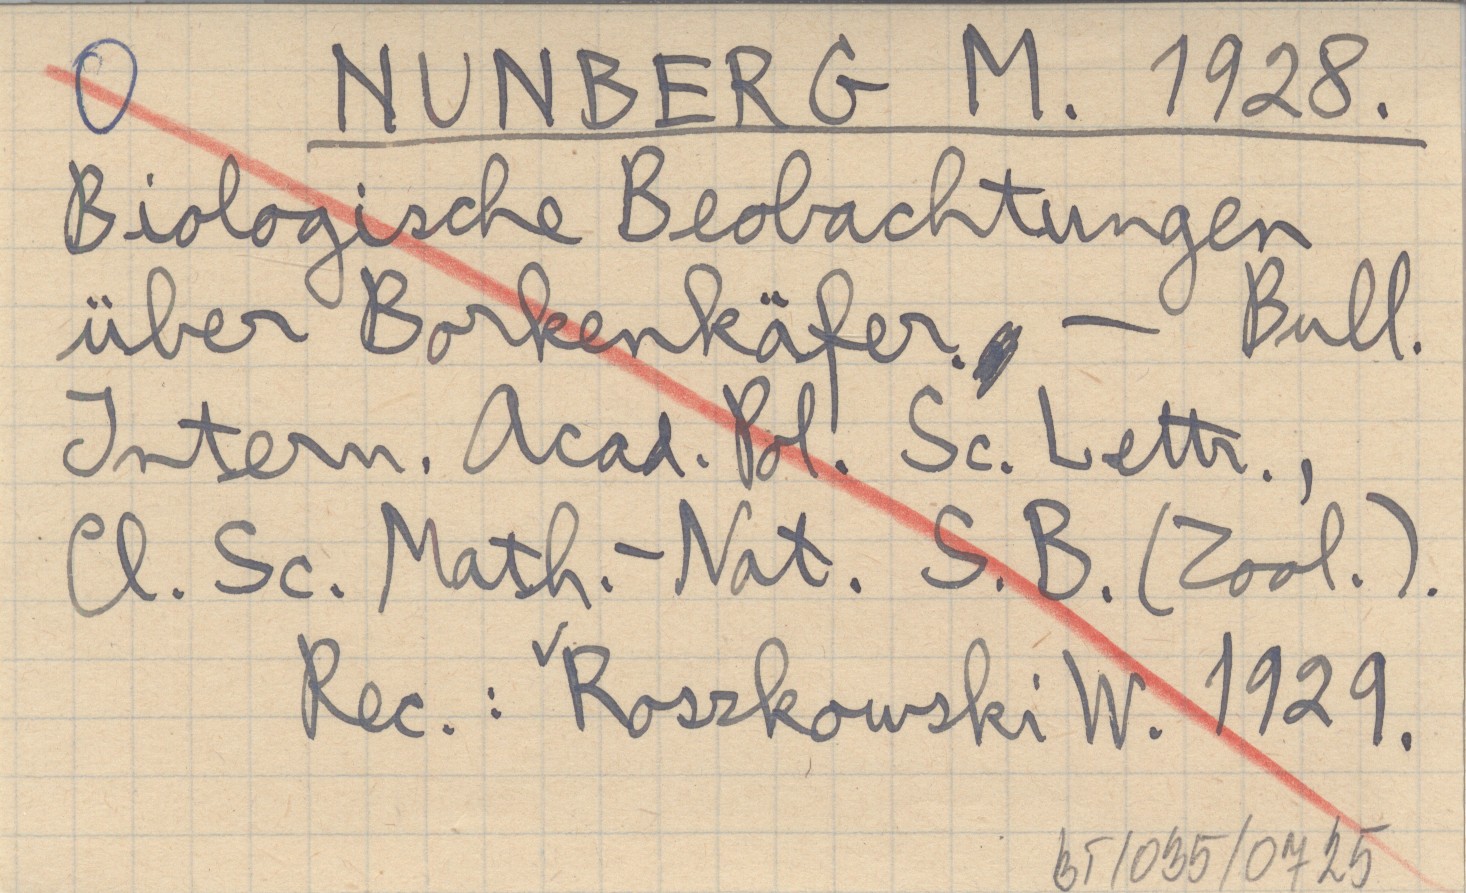 O NUNBERG M. 1928.
Biologische Beobachtungen
über Borkenkäfer. — Bull.
Intern. Acad. Pol. Sc. Lettr.,
Cl. Sc. Math.-Nat. S.B. (Zool.).
Rec.: ✓Roszkowski W. 1929.
BT/035/0725